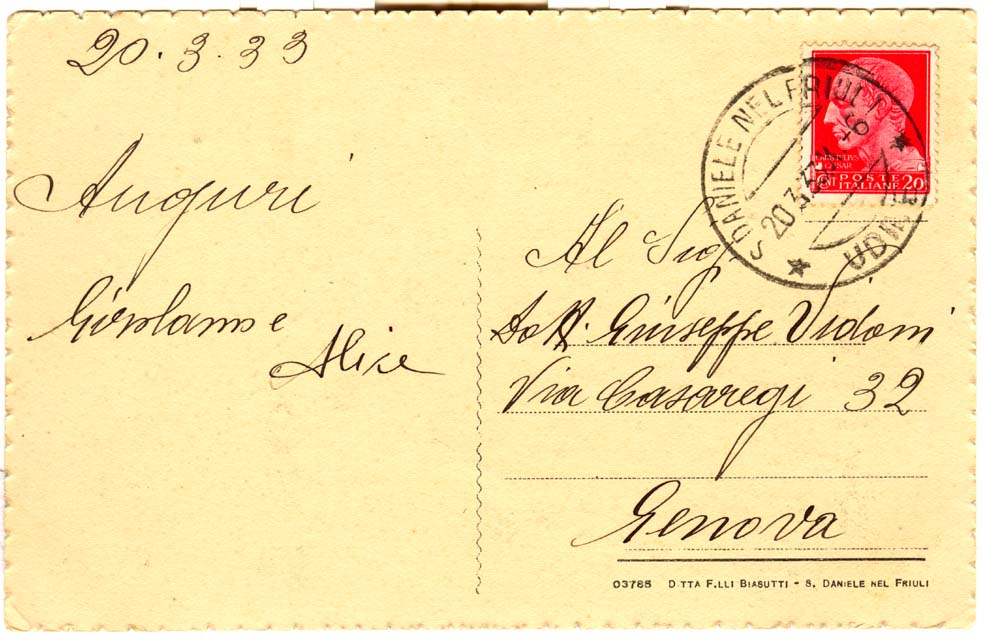 20.3.33
Auguri
Girolamo e
Alice
S. DANIELE NEL FRIULI
20.3.33
UDINE
CAESAR
CENT POSTE 20
ITALIANE
Al Sig
Dott. Giuseppe Vidoni
Via Casaregi 32
Genova
03765 DITTA F.LLI BIASUTTI - S. DANIELE NEL FRIULI